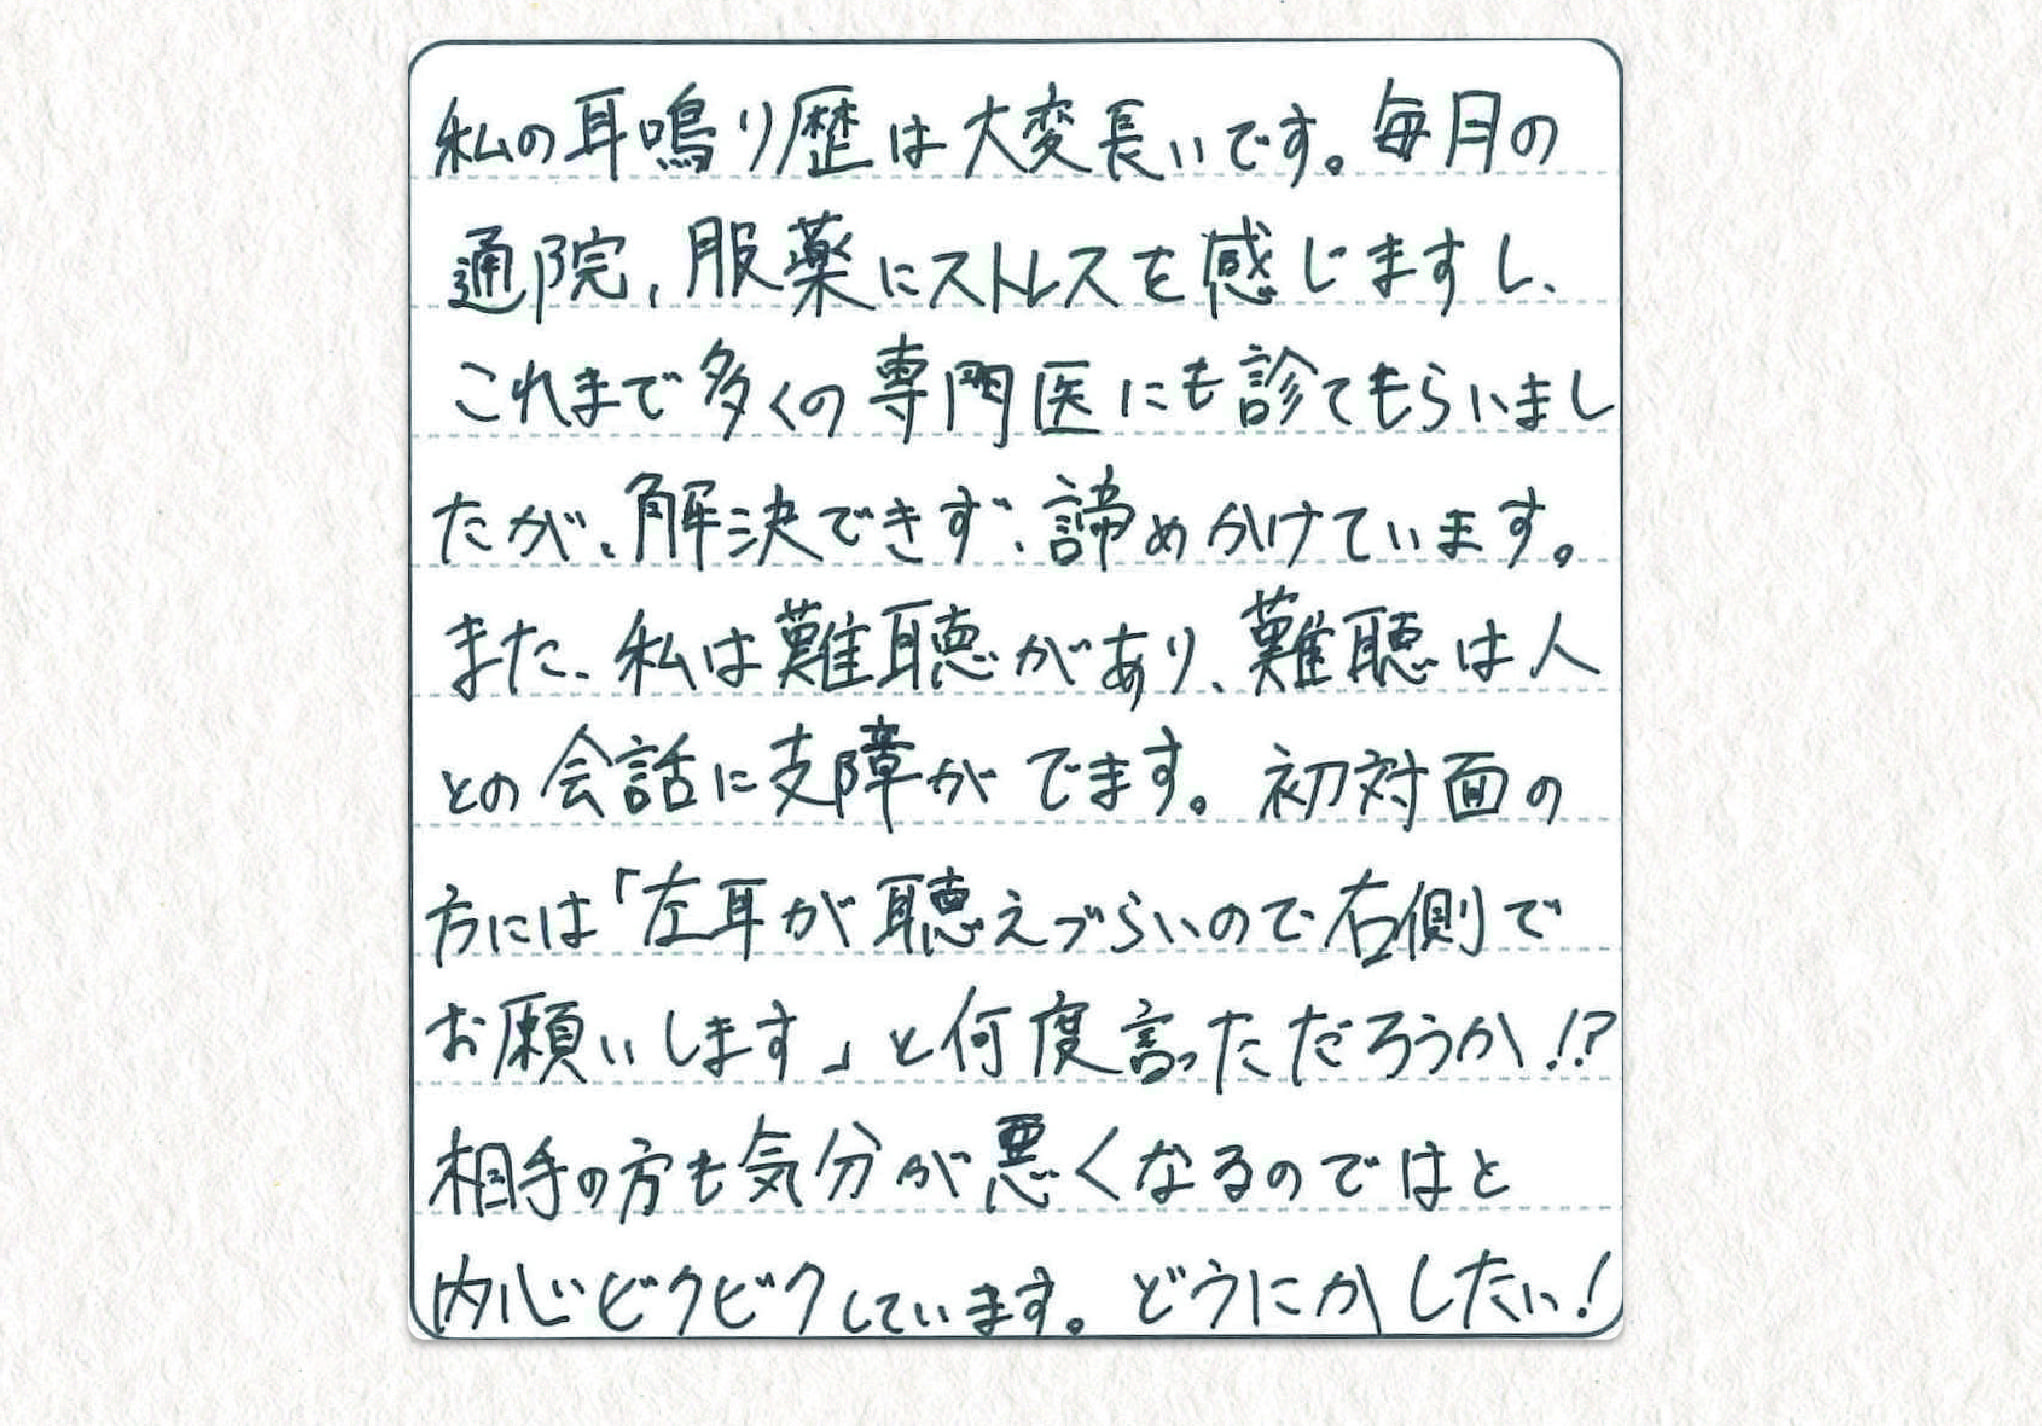 私の耳鳴り歴は大変長いです。毎月の
通院、服薬にストレスを感じますし、
これまで多くの専門医にも診てもらいまし
たが、解決できず、諦めかけています。
また、私は難聴があり、難聴は人
との会話に支障がでます。初対面の
方には「左耳が聴えづらいので右側で
お願いします」と何度言っただろうか!?
相手の方も気分が悪くなるのではと
内心ビクビクしています。どうにかしたい!